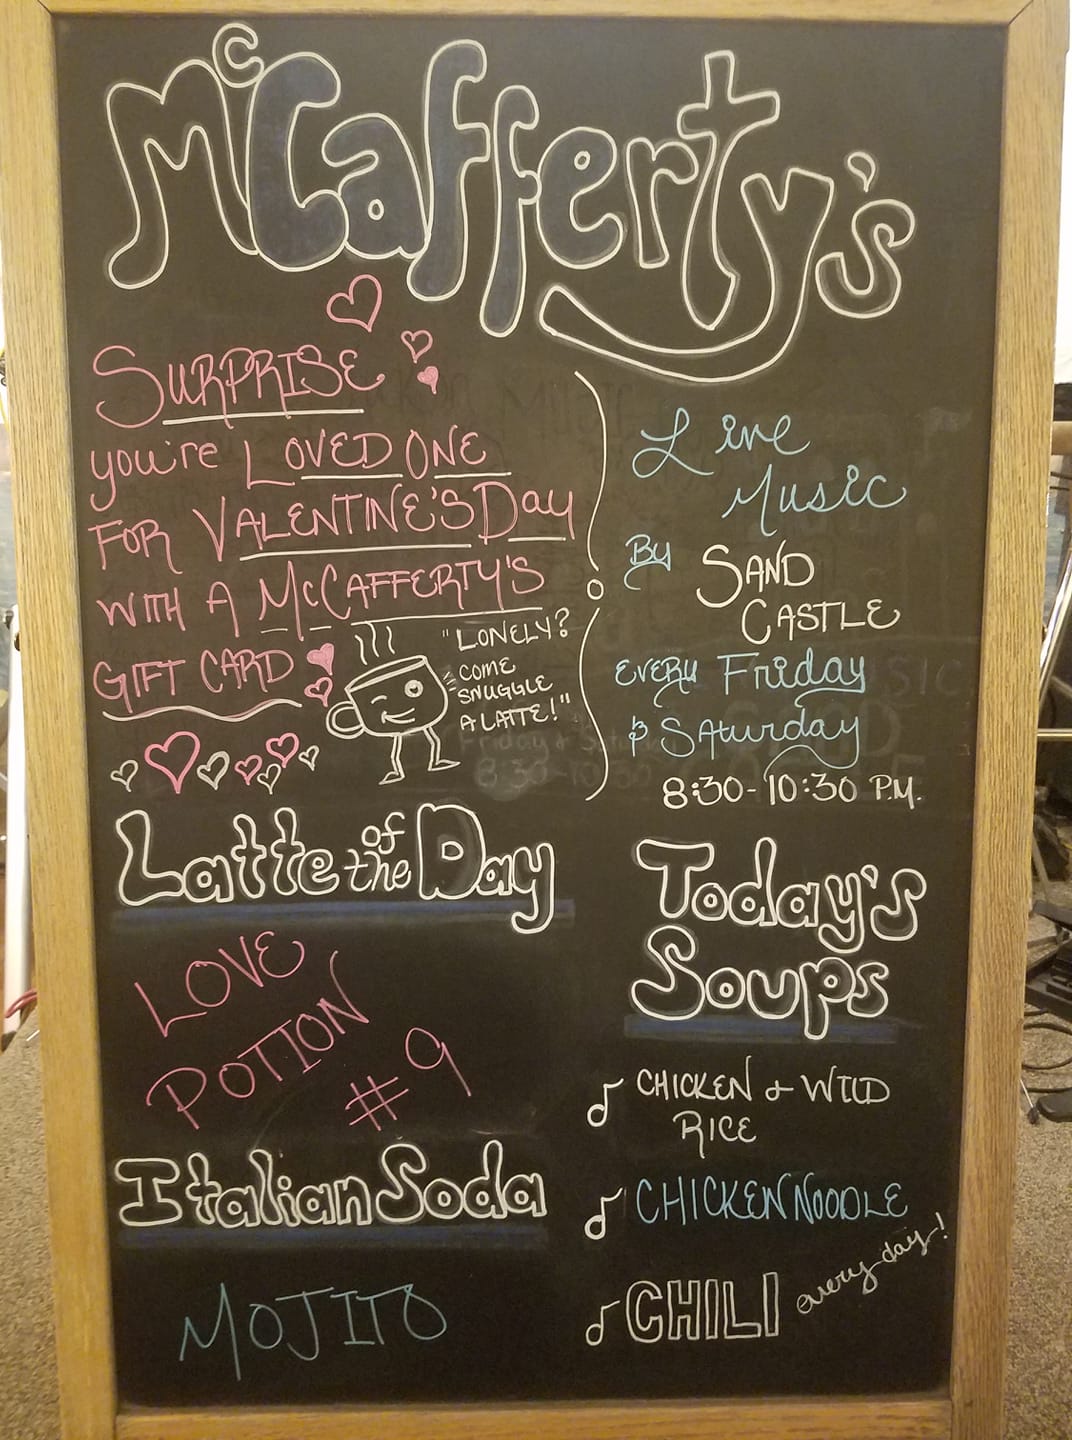 McCafferty's
SURPRISE
you're LOVED ONE
FOR VALENTINE'S Day
WITH A McCAFFERTY'S
GIFT CARD
"LONELY?
COME
SNUGGLE
A LATTE!"
Live
Music
By SAND
CASTLE
EVERY Friday
& SATurday
8:30-10:30 P.M.
Latte of the Day
LOVE
POTION
#9
Italian Soda
MOJITO
Today's
Soups
CHICKEN & WILD
RICE
CHICKEN NOODLE
CHILI every day!